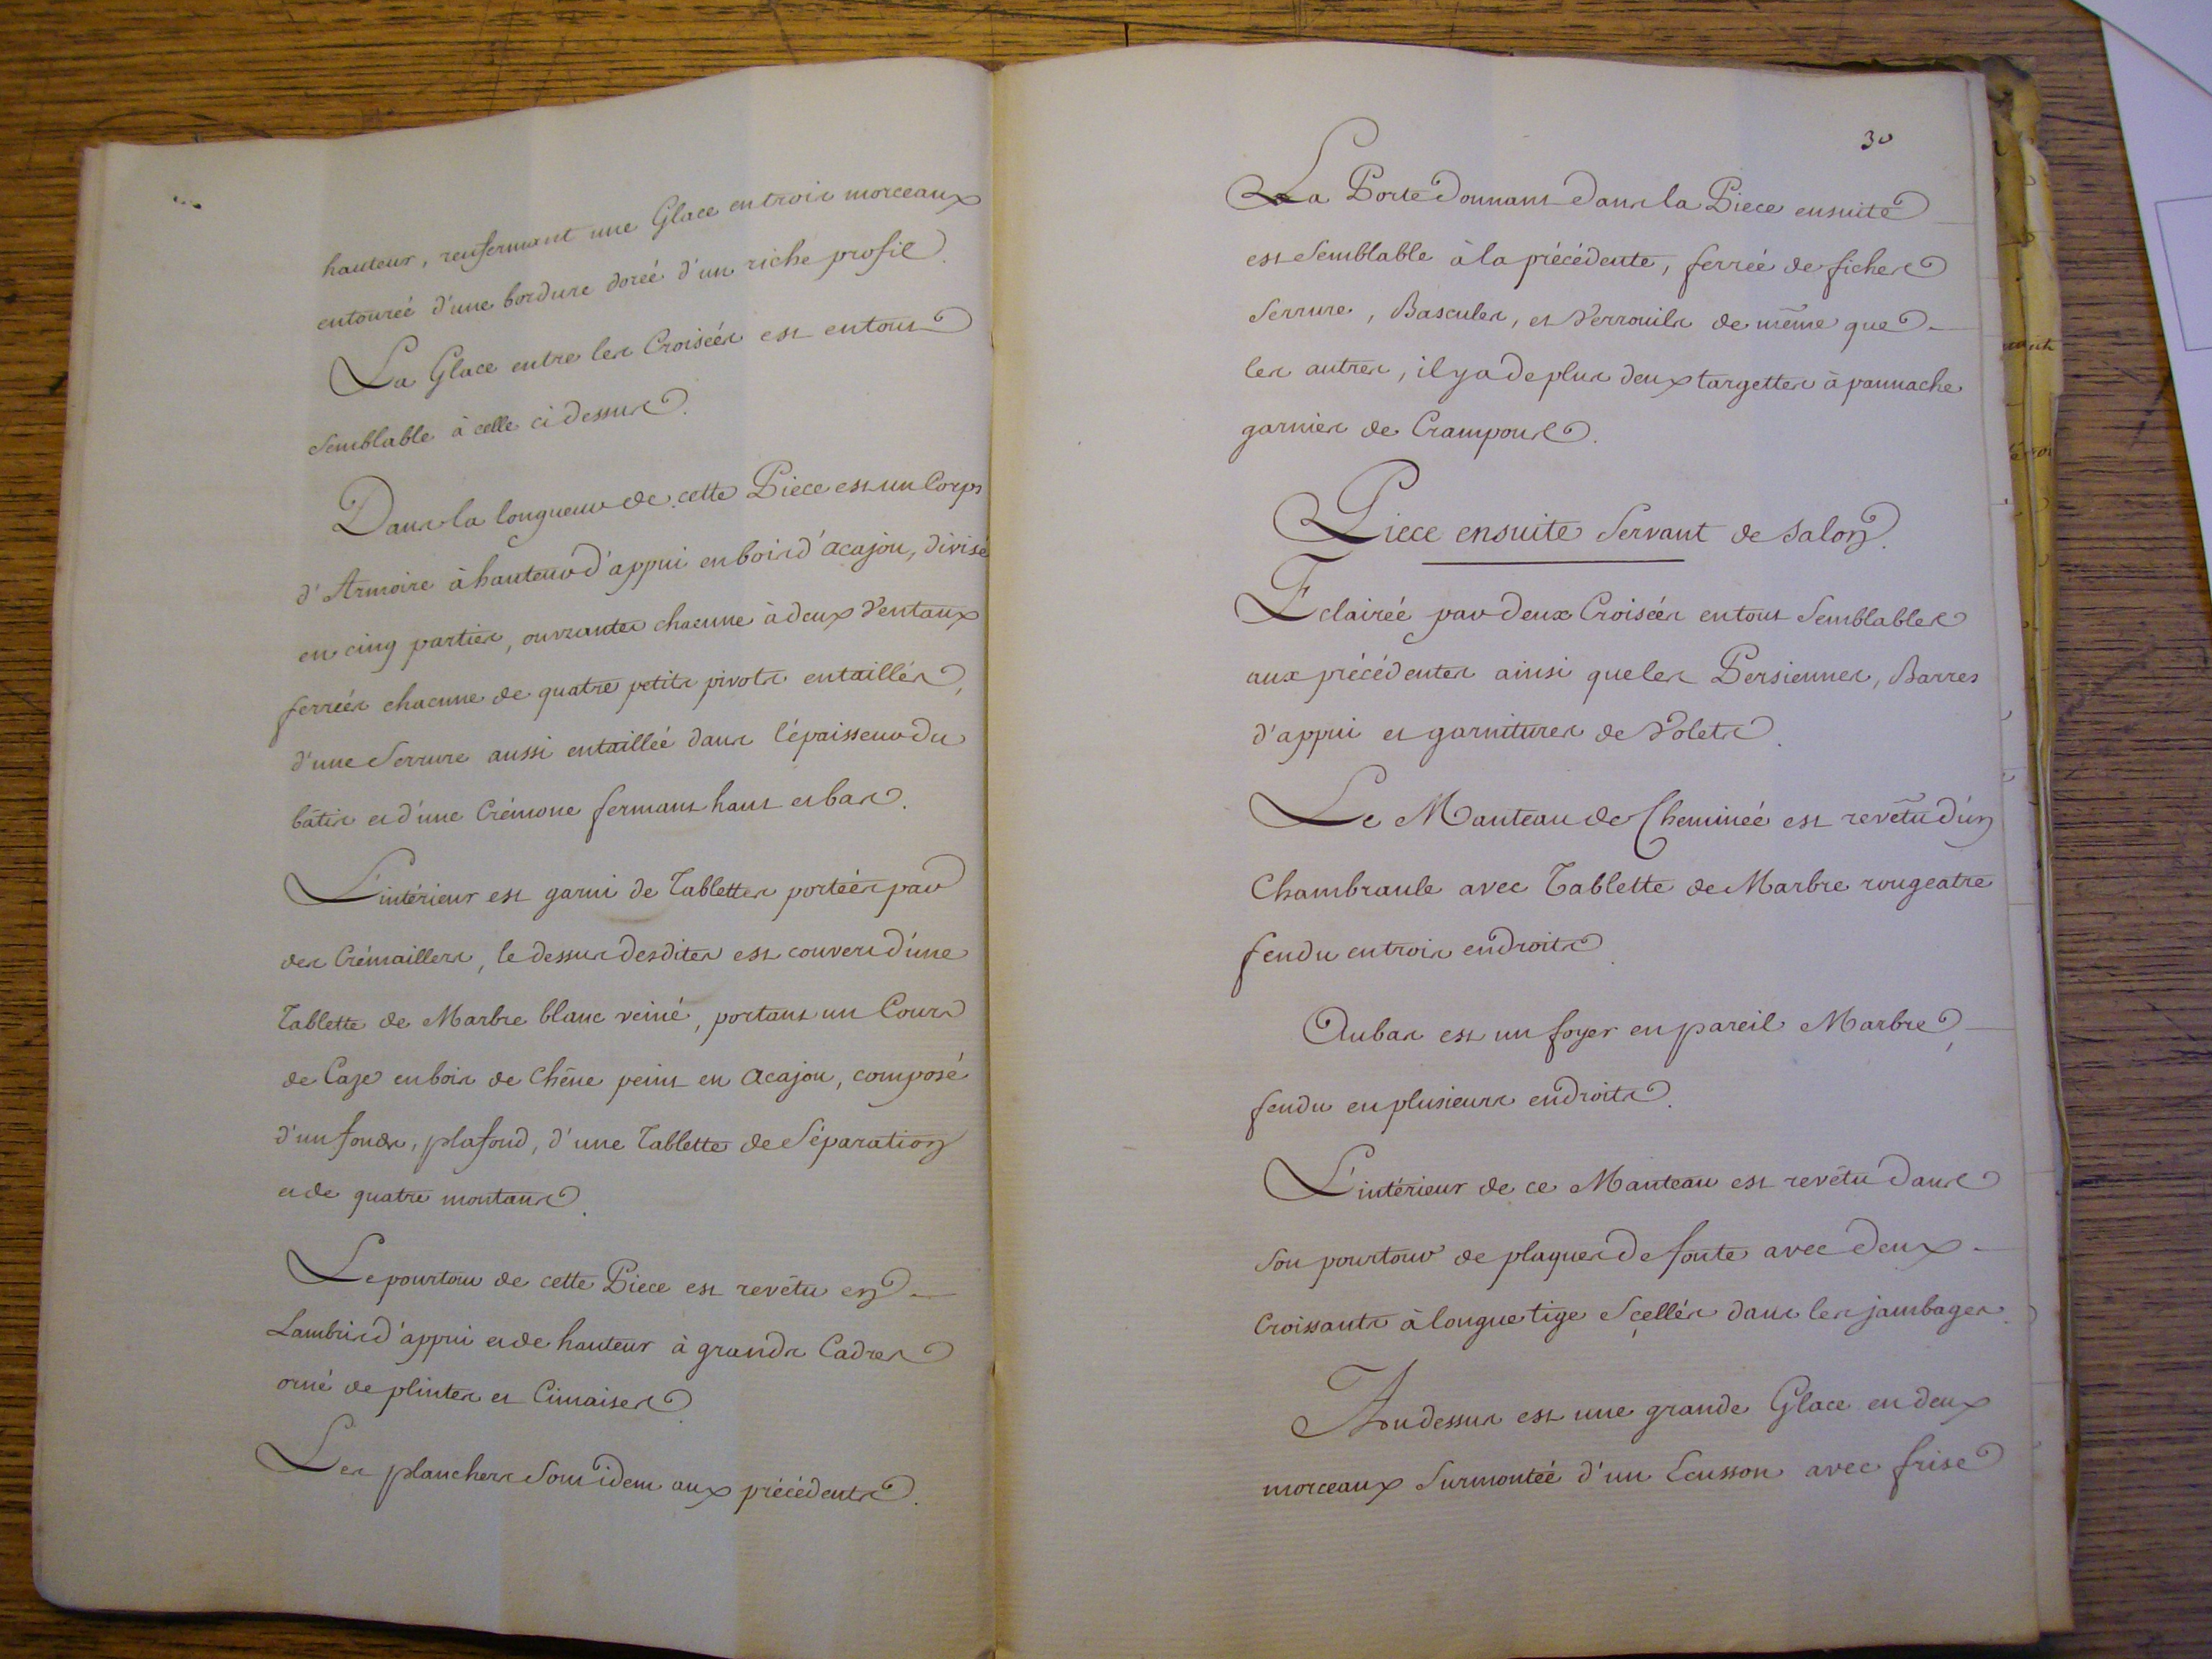 hauteur, renfermant une Glace en trois morceaux
entourée d'une bordure dorée d'un riche profil.
La Glace entre les Croisées est en tout
Semblable à celle ci dessus.
Dans la longueur de cette Piece est un Corps
d'Armoire à hauteur d'appui en bois d'acajou, divisé
en cinq parties, ouvrantes chacune à deux Ventaux
ferrées chacune de quatre petits pivots entaillés,
d'une Serrure aussi entaillée dans l'épaisseur du
bâtis et d'une Crémone fermant haut et bas.
L'intérieur est garni de Tablettes portées par
des Crémaillers, le dessus desdites est couvert d'une
Tablette de Marbre blanc veiné, portant un Cours
de Caze en bois de Chêne peint en acajou, composé
d'un fonds, plafond, d'une Tablette de Séparation
et de quatre montans.
Le pourtour de cette Piece est revêtu en
Lambris d'appui et de hauteur à grands Cadres
orné de plintes et Cimaises.
Les planchers Sont idem aux précédents.
30
La Porte donnant dans la Piece ensuite
est Semblable à la précédente, ferrée de fiches
Serrure, Bascules, et Verrouils de même que
les autres, il y a de plus deux targettes à pannache
garnies de Crampons.
Piece ensuite Servant de Salon.
Eclairée par deux Croisées en tout Semblables
aux précédentes ainsi que les Persiennes, Barres
d'appui et garnitures de Volets.
Le Manteau de Cheminée est revêtu d'un
Chambranle avec Tablette de Marbre rougeatre
fendu en trois endroits.
Au bas est un foyer en pareil Marbre,
fendu en plusieurs endroits.
L'intérieur de ce Manteau est revêtu dans
Son pourtour de plaques de fonte avec deux
Croissants à longue tige Scellés dans les jambages.
Au dessus est une grande Glace en deux
morceaux Surmontée d'un Ecusson avec frise